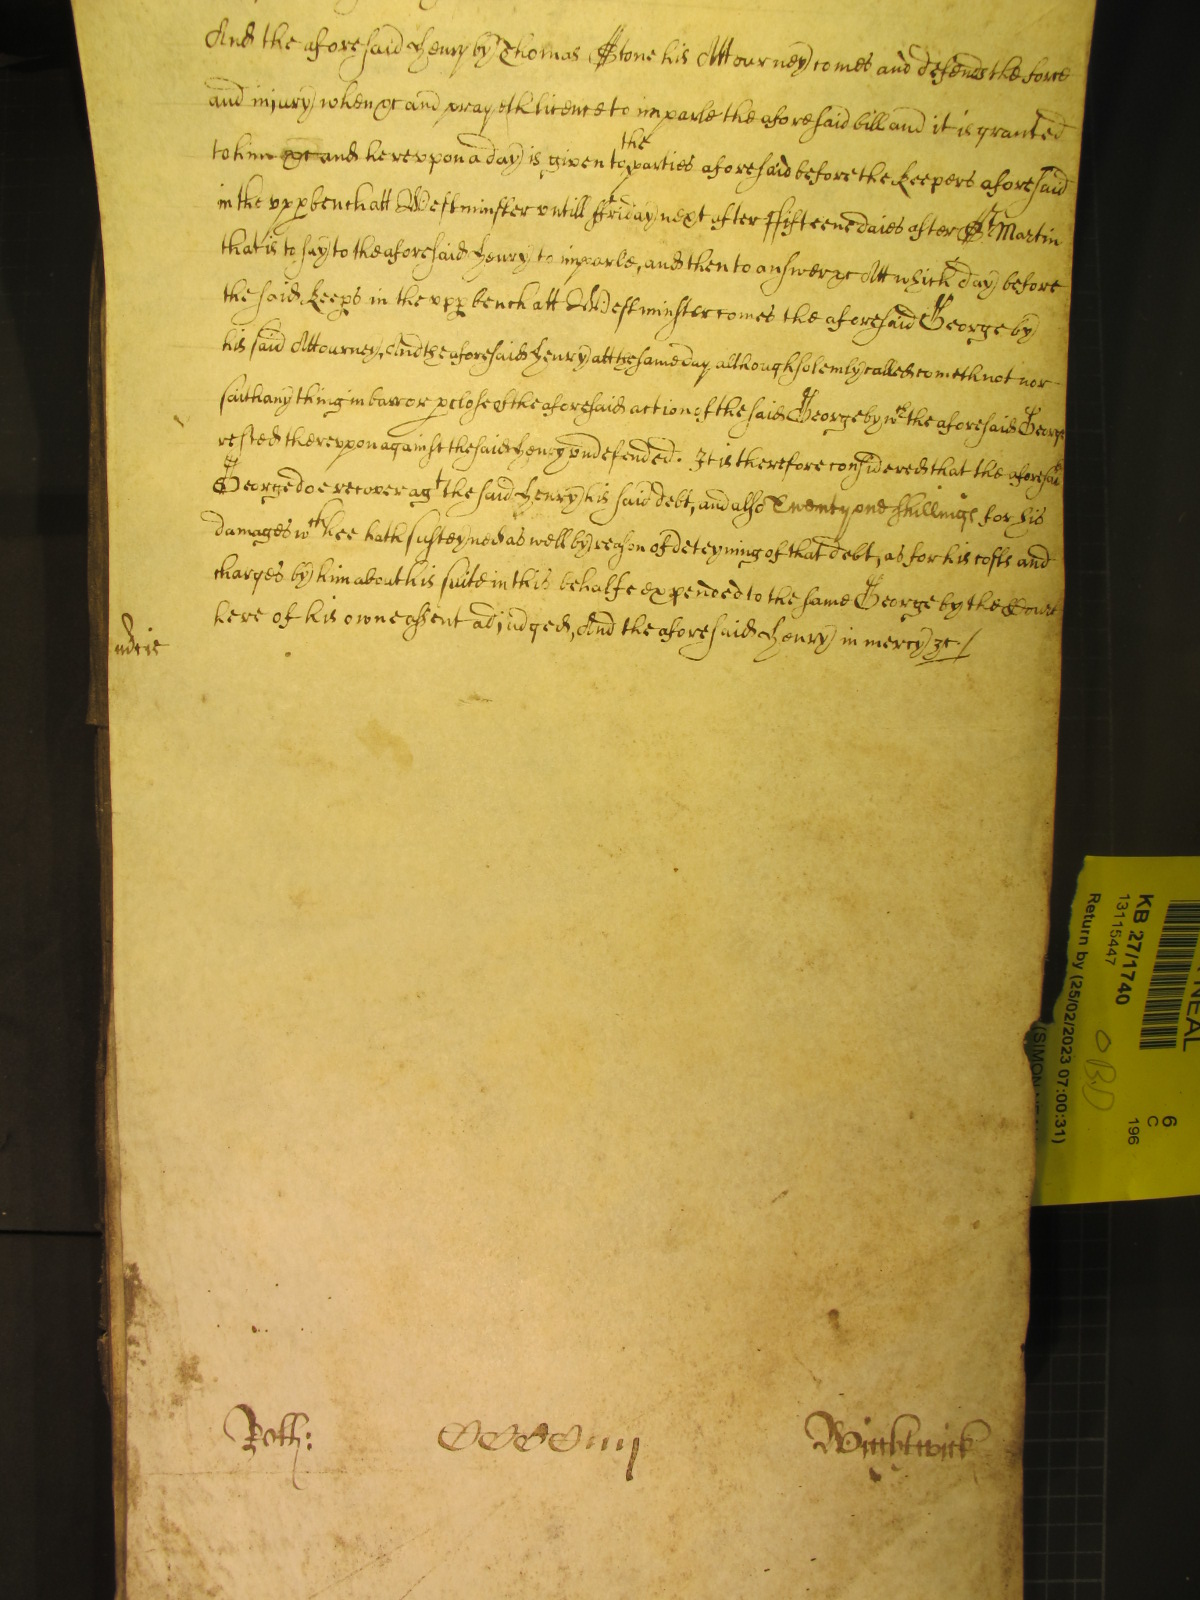 And the aforesaid Henry by Thomas Stone his Attourney comes and defends the force
and injury when &c and prayeth licence to imparle the aforesaid bill and it is granted
to him &c and hereupon a day is given to the parties aforesaid before the Keepers aforesaid
in the upp bench att Westminster untill ffriday next after ffifteene daies after St Martin
that is to say to the aforesaid Henry to imparle, and then to answer &c Att which day before
the said Keeps in the upp bench att Westminster comes the aforesaid George by
his said Attourney, And the aforesaid Henry att the same day although solemly called cometh not nor
saith any thing in barr or pclose of the aforesaid action of the said George by wch the aforesaid George
rested thereupon against the said Henry undefended. It is therefore considered that the aforesaid
George doe recover agt the said Henry his said debt, and also Twenty one shillings for his
damages wch hee hath susteyned as well by reason of deteyning of that debt, as for his costs and
charges by him about his suite in this behalfe expended to the same George by the Court
here of his owne assent adjudged, And the aforesaid Henry in mercy &c /
Wightwick
KB 27/1740
13115447
Return by (25/02/2023 07:00:31)
(SIMON
NEAL
6
C
196